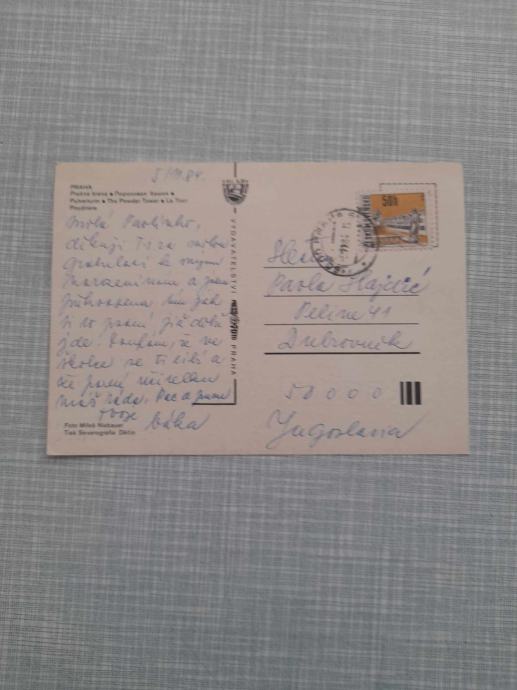 5/11.84.
PRAHA
Prašná brána • Пороховая башня •
Pulverturm • The Powder Tower • La Tour
Poudrière
Milá Pavlinko,
děkuji Ti za
gratulaci k mým
narozeninám a jsem
překvapena jak
Ti to psaní již dobře
jde! Doufám, že ve
školce se Ti líbí a
že paní učitelku
máš ráda. Pac a pusu
Tvoje
bába
Foto Miloš Niebauer
Tisk Severografia Děčín
VYDAVATELSTVÍ
PRAHA
50h
PRAHA
Pavla Hajdić
Peline 41
Dubrovnik
50000
Yugoslavia